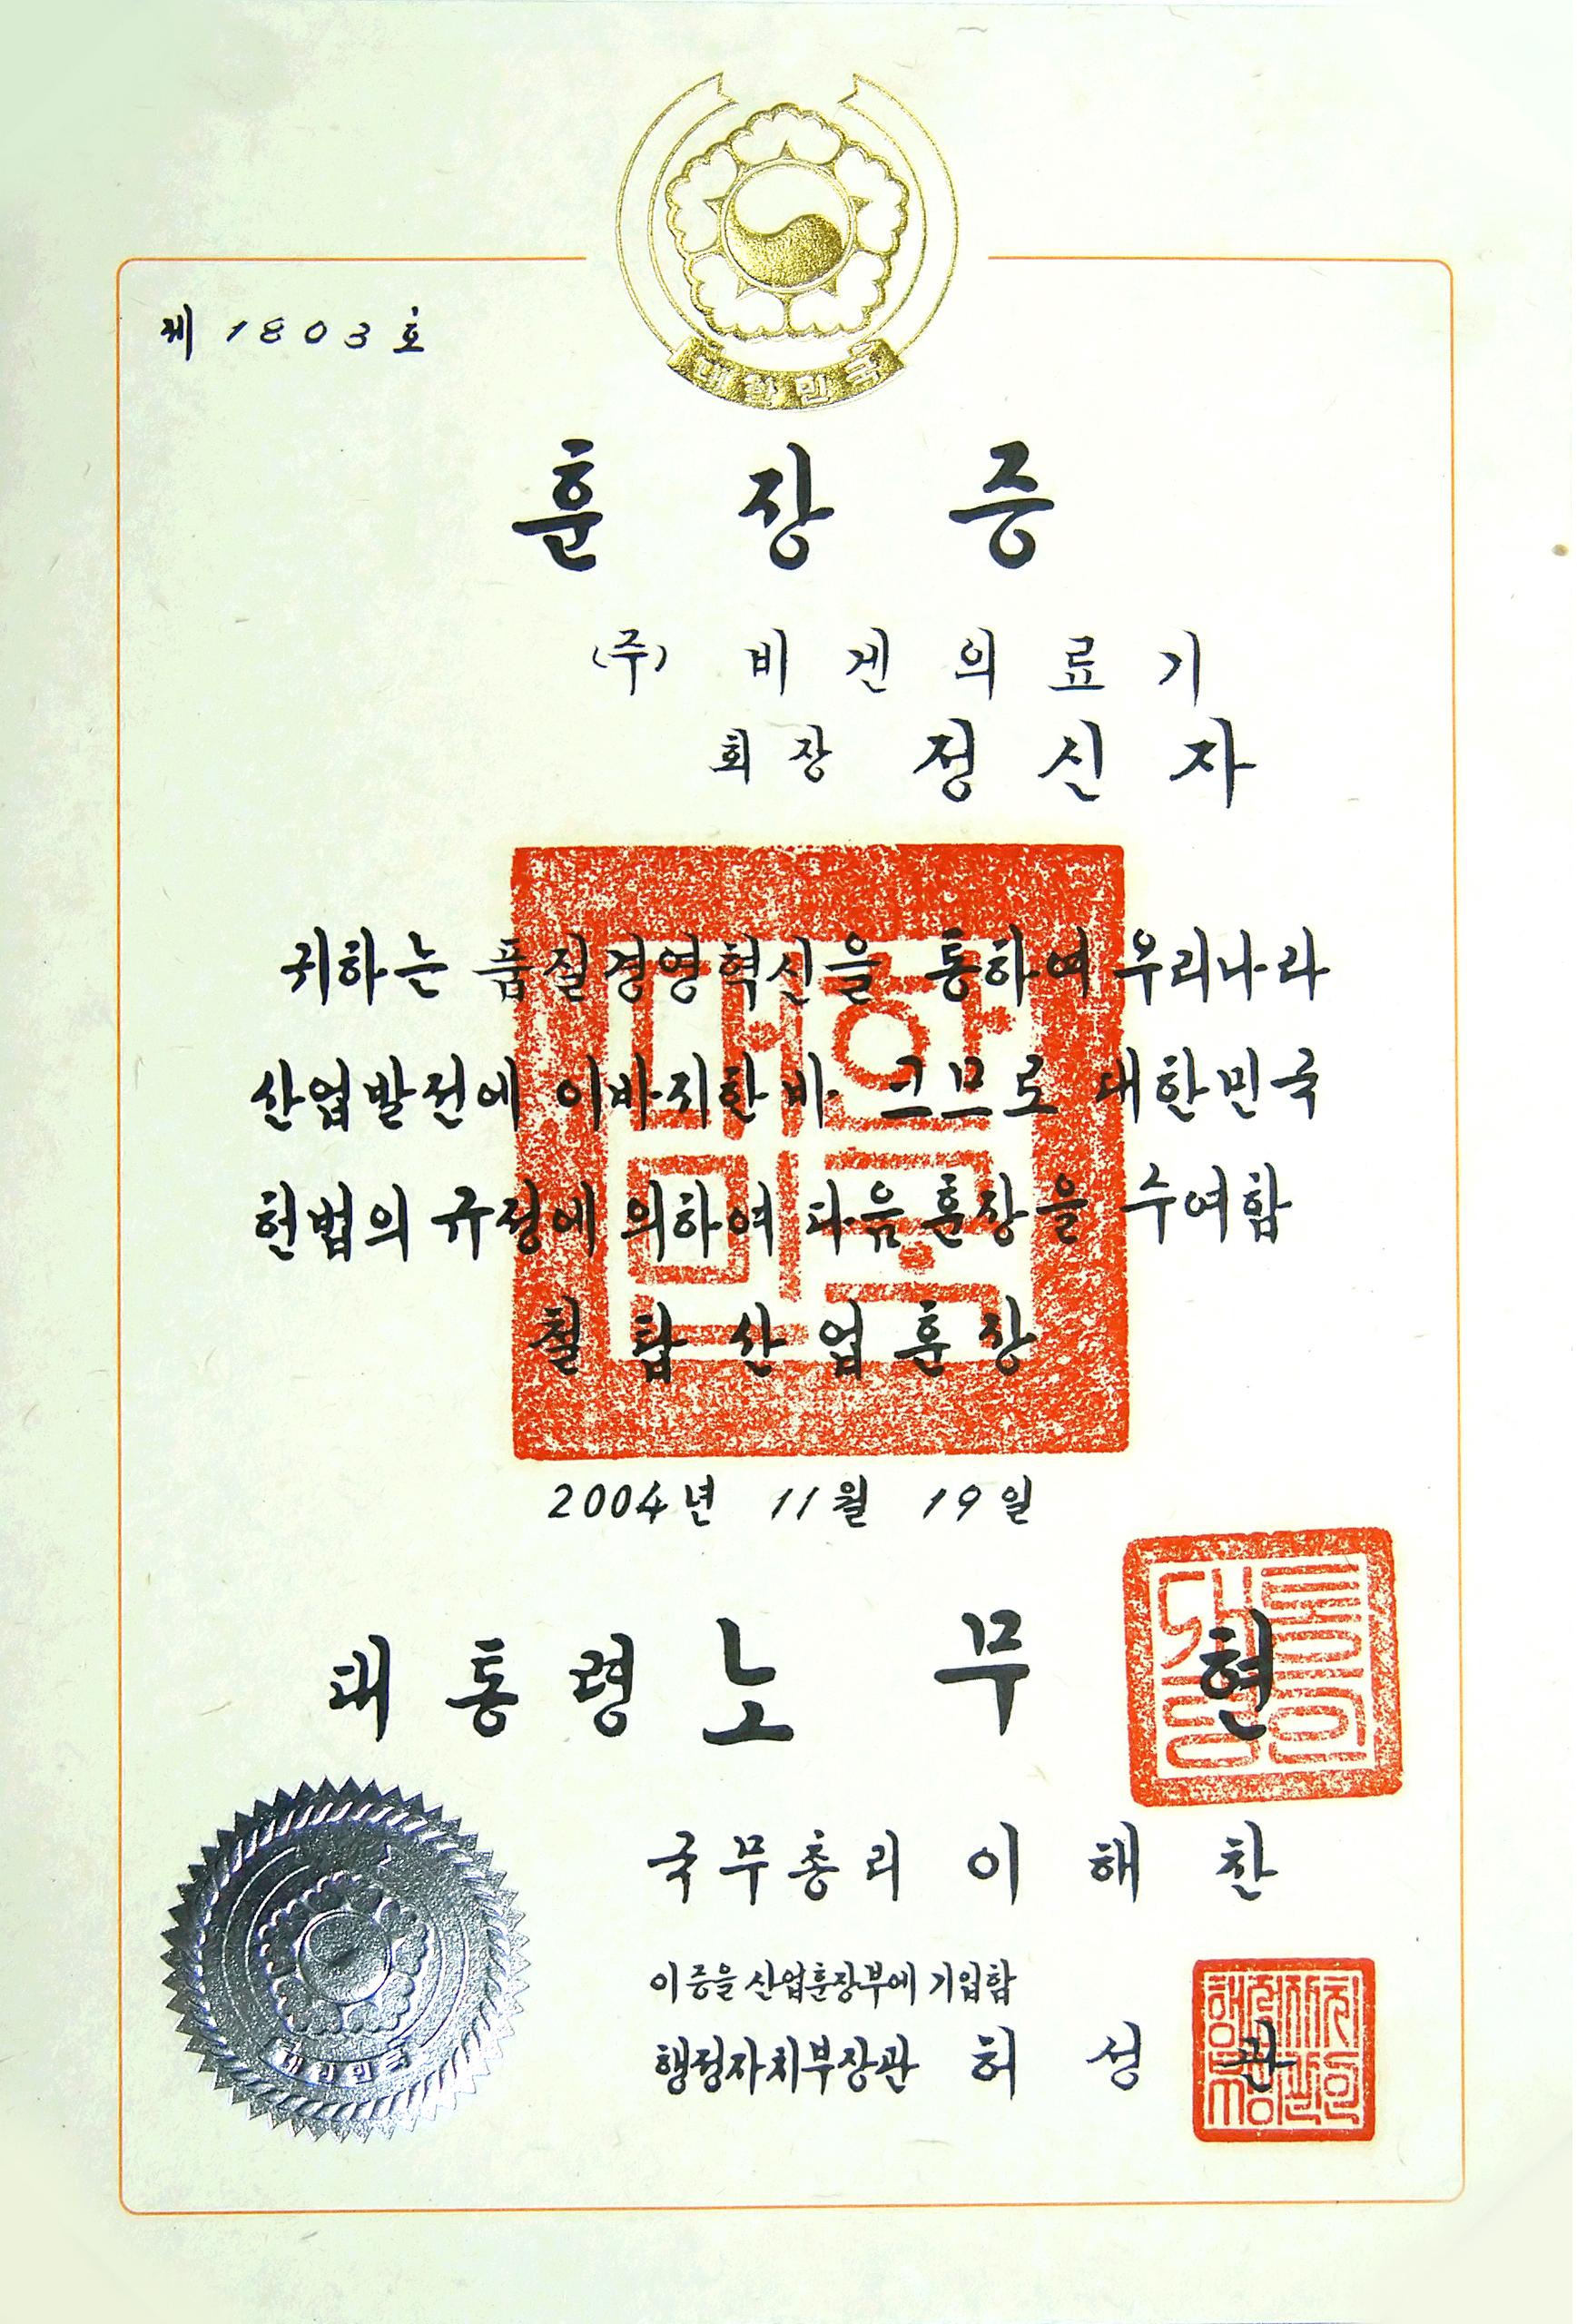 대한민국
제 1803 호
훈장증
(주) 비겐의료기
회장 정신자
귀하는 품질경영혁신을 통하여 우리나라
산업발전에 이바지한 바 크므로 대한민국
헌법의 규정에 의하여 다음 훈장을 수여함
철탑산업훈장
대한민국
2004년 11월 19일
대통령 노무현
국무총리 이해찬
이 증을 산업훈장부에 기입함
행정자치부장관 허성관
대한민국